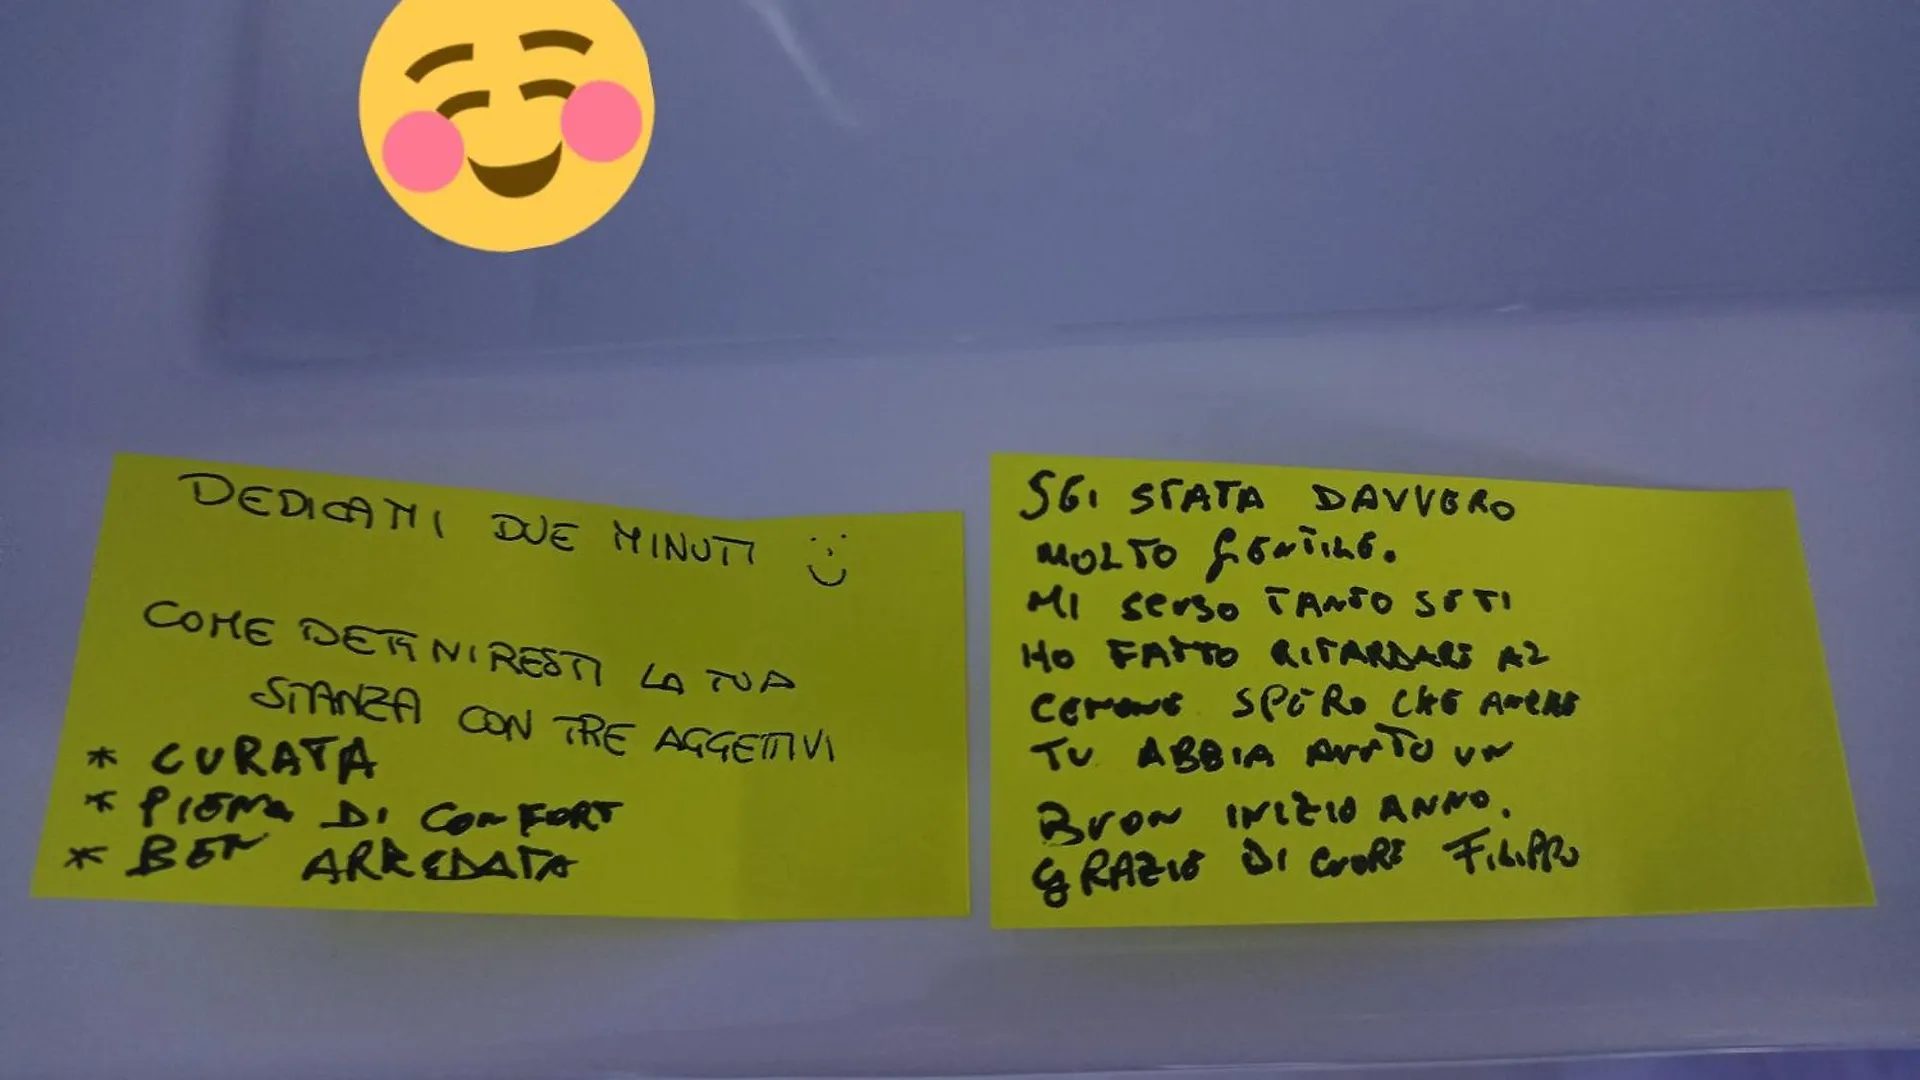 DEDICAMI DUE MINUTI :)
COME DEFINIRESTI LA TUA
STANZA CON TRE AGGETTIVI
* CURATA
* PIENA DI COMFORT
* BEN ARREDATA
SEI STATA DAVVERO
MOLTO GENTILE.
MI SCUSO TANTO SE TI
HO FATTO RITARDARE AL
CENONE SPERO CHE ANCHE
TU ABBIA AVUTO UN
BUON INIZIO ANNO.
GRAZIE DI CUORE FILIPPO